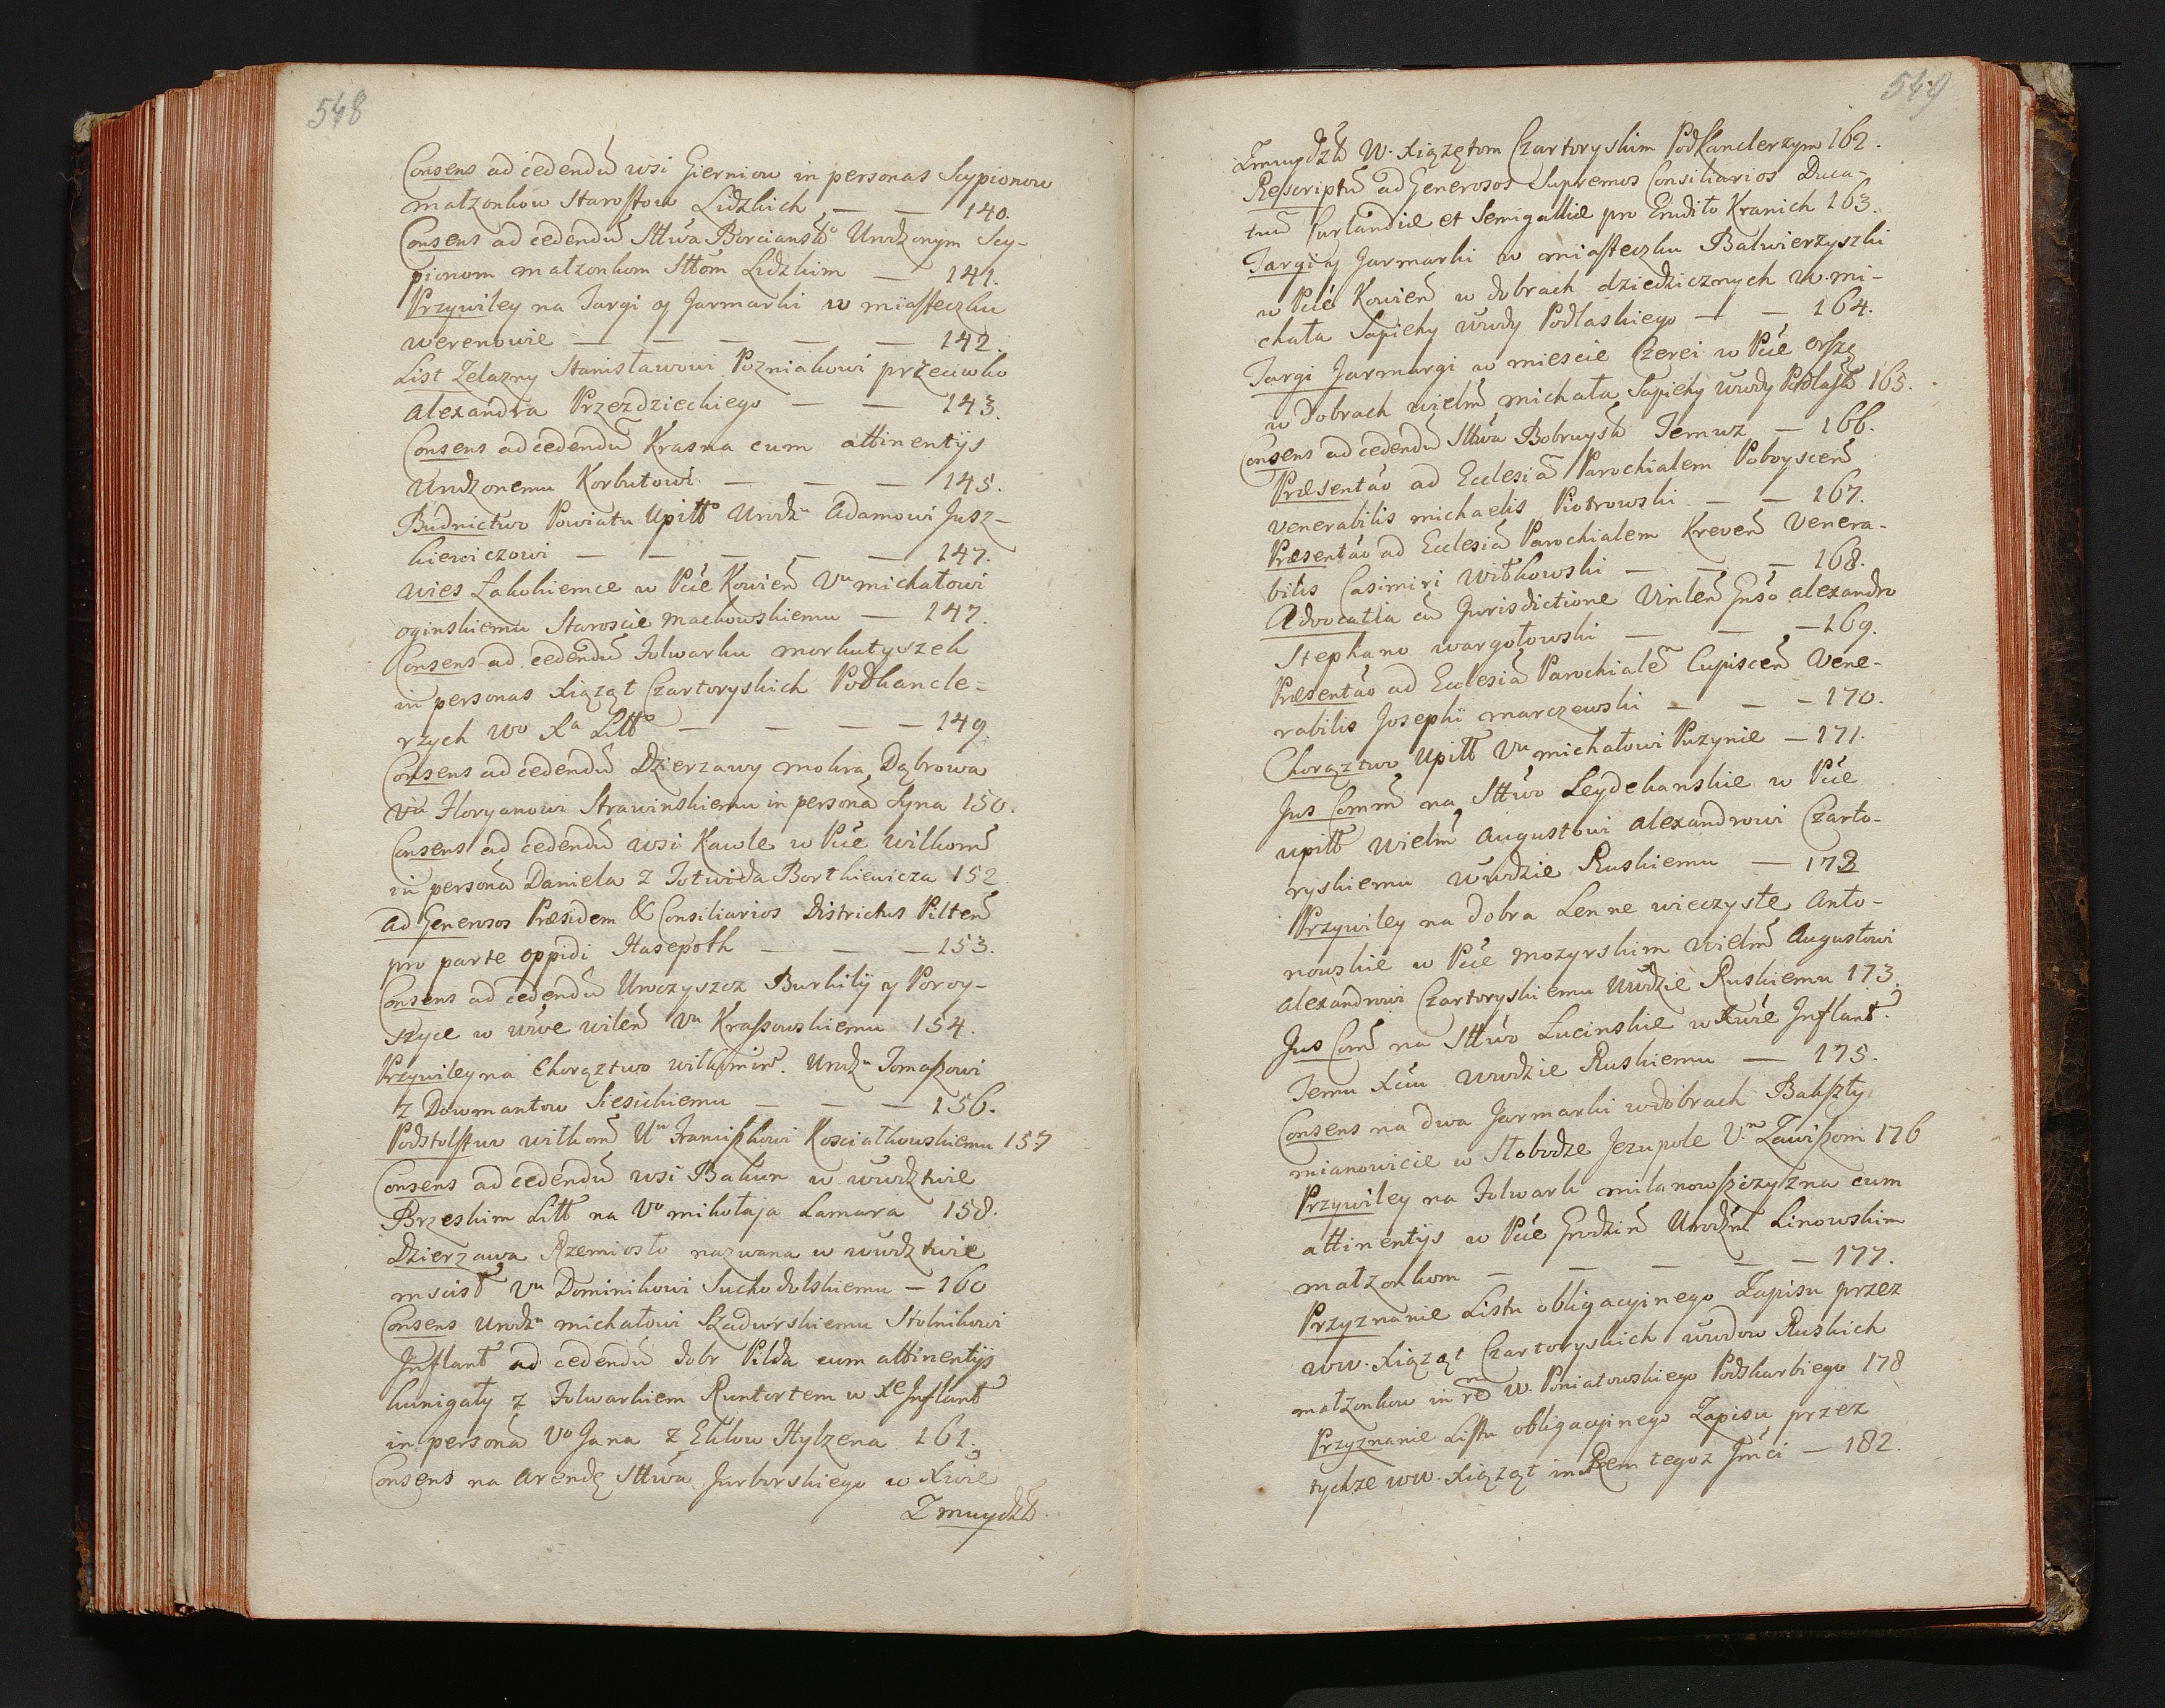 548
Consens ad cedendũ wsi Gierniow in personas Scypionow
małzonkow Starostow Lidzkich — — 140.
Consens ad cedendũ Sttwa Borcianskº Urodzonym Scy-
pionom małzonkom Sttom Lidzkim — 141.
Przywiley na Targi y Jarmarki w miasteczku
werenowie — — — — — 142.
List Zelazny Stanisławowi Pozniakowi przeciwko
Alexandra Przezdzieckiego — — 143.
Consens ad cedendũ Krasna cum attinentijs
Urodzonemu Korbutowi — — — 145.
Budnictwo Powiatu Upittº Urodzᵘ Adamowi Jusz-
kiewiczowi — — — — — 147.
wies Łakokiemce w Pcie Kowień Vᵘ michałowi
oginskiemu Staroscie machowskiemu — 147.
Consens ad cedendũ Folwarku markutyszek
in personas Xiąząt Czartoryskich Podkancle-
rzych Wº Xᵃ Littº — — — — 149.
Consens ad cedendũ Dzierzawy mokra Dąbrowa
Vᵘ Floryanowi Strawinskiemu in personã Syna 150.
Consens ad cedendũ wsi Kawle w Pcie wiłkom̃
in personã Daniela z Jotwida Bortkiewicza 152
Ad Generosos Præsidem & Consiliarios Districtus Pilteñ
pro parte oppidi Hasepoth — — — 153.
Consens ad cedendũ Uroczyszcz Burbiliÿ y Poroy-
szyce w wwe wileñ Vᵘ Krassowskiemu 154.
Przywiley na Chorąztwo wiłkomir. Urodzᵘ Tomaszowi
z Dowmantow Siesickiemu — — — 156.
Podstolstwo wiłkom̃ Uᵘ Franciszkowi Kosciałkowskiemu 157
Consens ad cedendũ wsi Bakun w wwdztwie
Brzeskim Litt na Vº mikołaja Lamara 158.
Dzierzawa Rzemiosło nazwana w wwdztwie
mscisł Vᵘ Dominikowi Suchodolskiemu — 160
Consens Urodzᵘ michałowi Szadurskiemu Stolnikowi
Inflant ad cedendũ dobr Pilda cum attinentijs
kunigały z Folwarkiem Runtortem w Xᵉ Inflant
in personã Vº Jana z Eklow Hylzena 161.
Consens na Arendę Sttwa Jurborskiego w Xwie
Zmuydzk̃
549
Zmuydzk̃ W. Xiązętom Czartoryskim Podkanclerzym 162.
Rescriptũ ad Generosos Supremos Consiliarios Duca-
tuũ Curlandiæ et Semigalliæ pro Erudito Kranich 163.
Targi y Jarmarki w miasteczku Balwierzyszki
w Pcie Kowień w dobrach dziedzicznych W. mi-
chała Sapiehy wwdy Podlaskiego — — 164.
Targi Jarmargi w miescie Czerei w Pcie orszę
w dobrach wielm̃ michała Sapiehy wwdy Podlask̃ 165.
Consens ad cedendũ Sttwa Bobruysk̃ Temuz — 166.
Præsentão ad Ecclesiã Parochialem Poboysceñ
Venerabilis michaelis Piotrowski — — 167.
Præsentão ad Ecclesiã Parochialem Kreveñ Venera-
bilis Casimiri witkowski — — — 168.
Advocatia cũ Jurisdictione Vilneñ Gnso Alexandro
Stephano wargołowski — — — 169.
Præsentão ad Ecclesiã Parochialẽ Cupisceñ Vene-
rabilis Josephi marczewski — — — 170.
Chorąztwo Upitt Vᵘ michałowi Puzynie — 171.
Jus Comm̃ na Sttwo Leydekanskie w Pcie
upitt wielm̃ Augustowi Alexandrowi Czarto-
ryskiemu Wwdzie Ruskiemu — 172
Przywiley na dobra Lenne wieczyste Anto-
nowskie w Pcie mozyrskim wielm̃ Augustowi
Alexandrowi Czartoryskiemu Wwdzie Ruskiemu 173.
Jus Com̃ na Sttwo Lucinskie w Xwie Inflant.
Temu Xciu Wwdzie Ruskiemu — 175.
Consens na dwa Jarmarki w dobrach Bakszty
mianowicie w Słobodze Jezupole V.ᵐ Zawiszom 176
Przywiley na Folwark milanowszczyzna cum
attinentijs w Pcie Grodzień Urodzm̃ Linowskim
małzonkom — — — — — 177.
Przyznanie Listu obligacyinego Zapisu przez
ww. Xiąząt Czartoryskich wwdow Ruskich
małzonkow in rem W. Poniatowskiego Podskarbiego 178
Przyznanie Listu obligacyinego Zapisu przez
tychze ww. Xiąząt in Rem tegoz Jmci — 182.